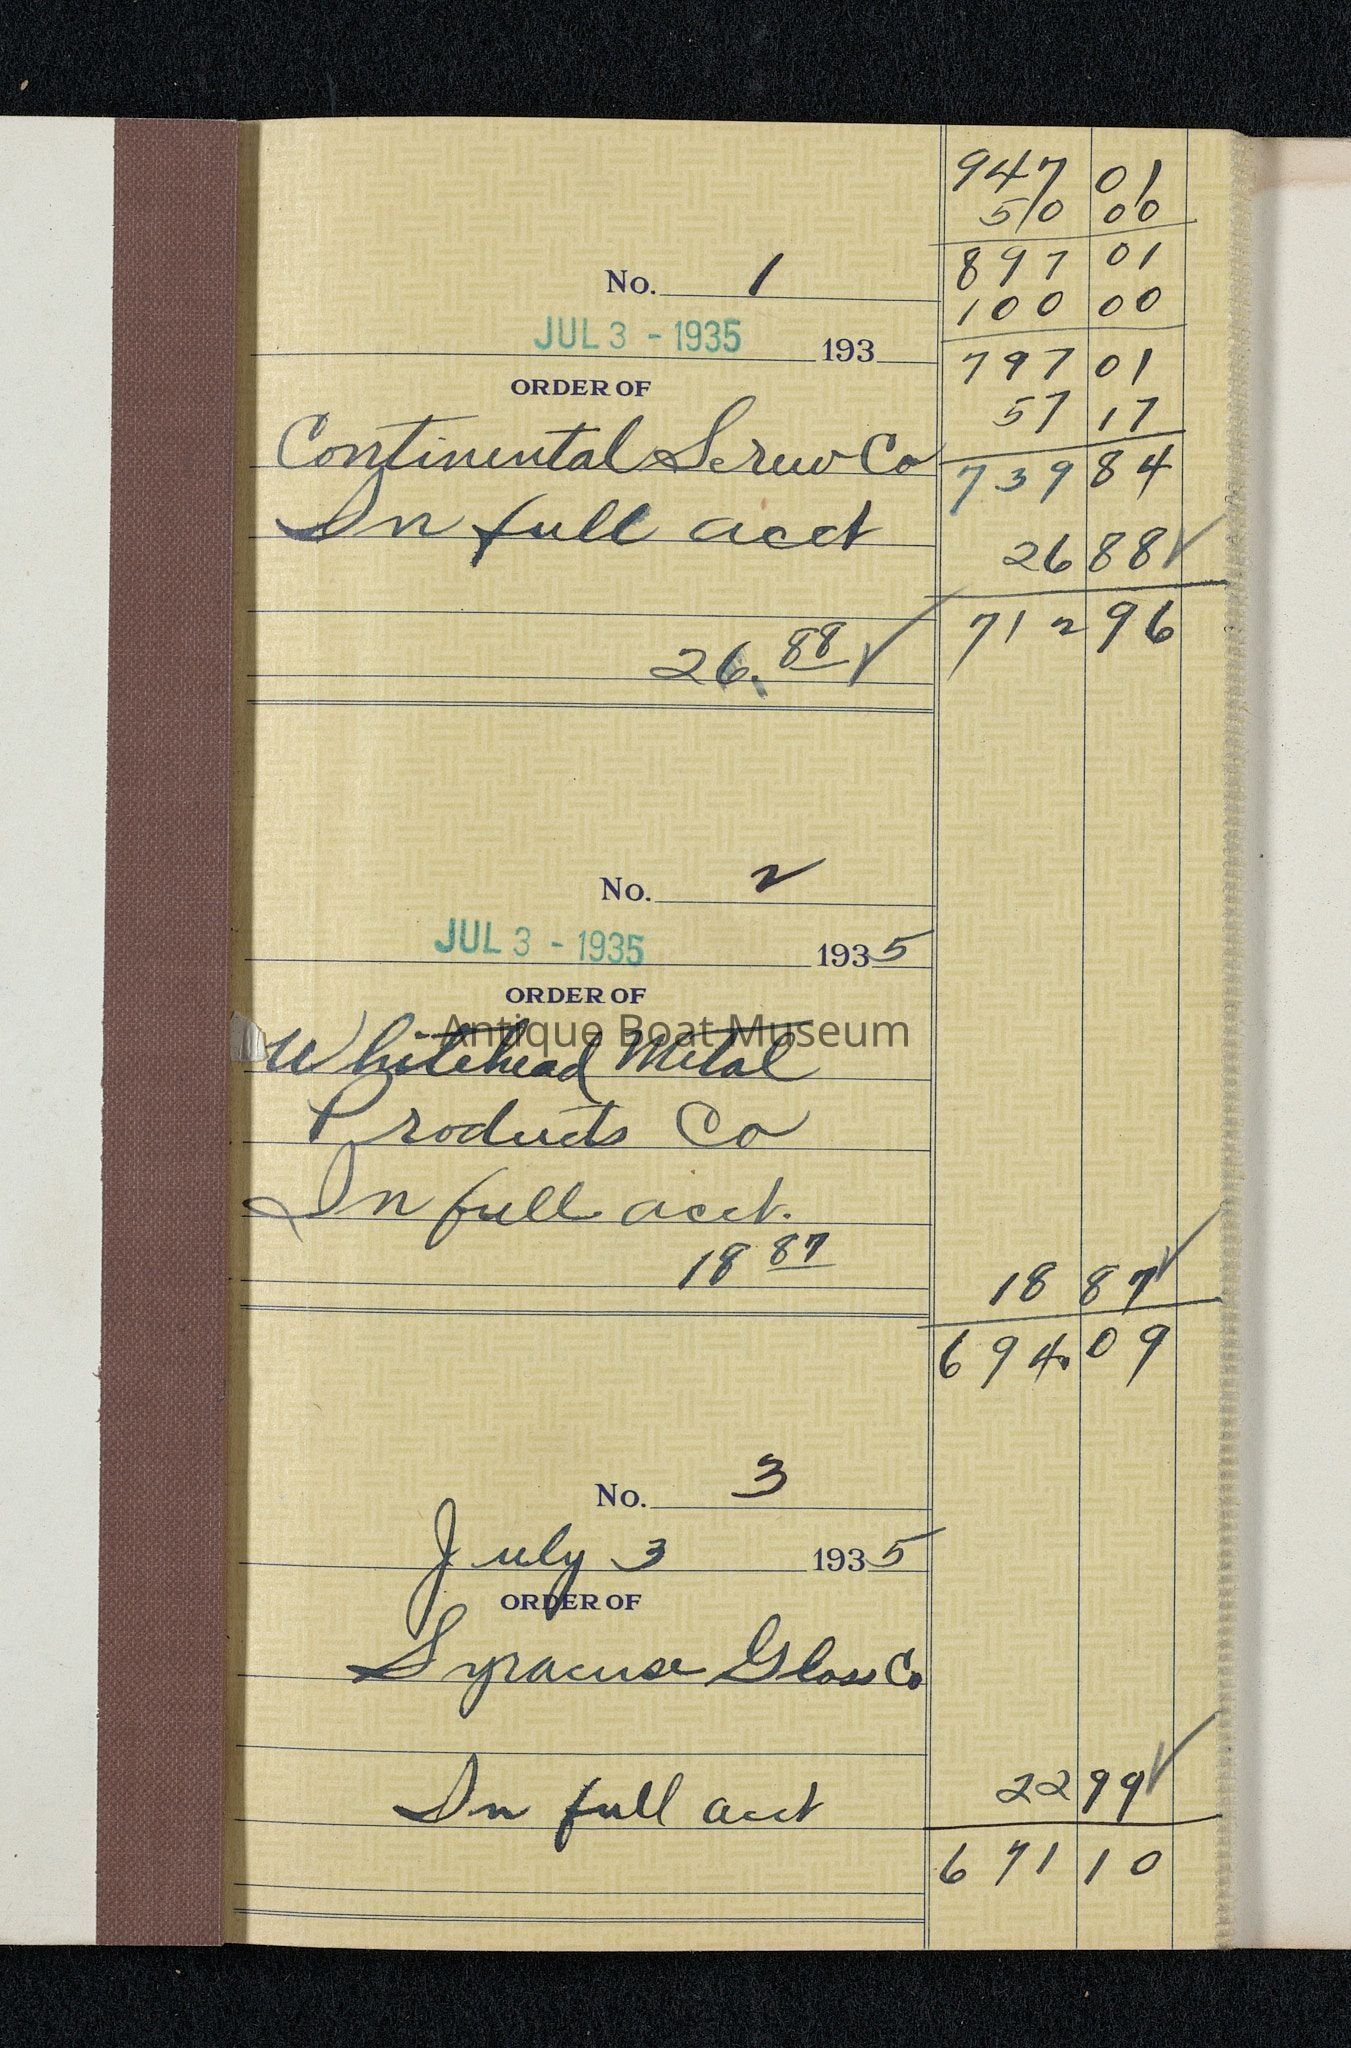 947 01
50 00
897 01
No. 1
100 00
JUL 3 - 1935 193
797 01
ORDER OF
57 17
Continental Screw Co
739 84
In full acct
26 88 ✓
712 96
26.88 ✓
No. 2
JUL 3 - 1935 1935
ORDER OF
Antique Boat Museum
Whitehead Metal
Products Co
In full acct.
18 87
18 87 ✓
694.09
No. 3
July 3 1935
ORDER OF
Syracuse Glass Co.
In full acct
22 99 ✓
671 10